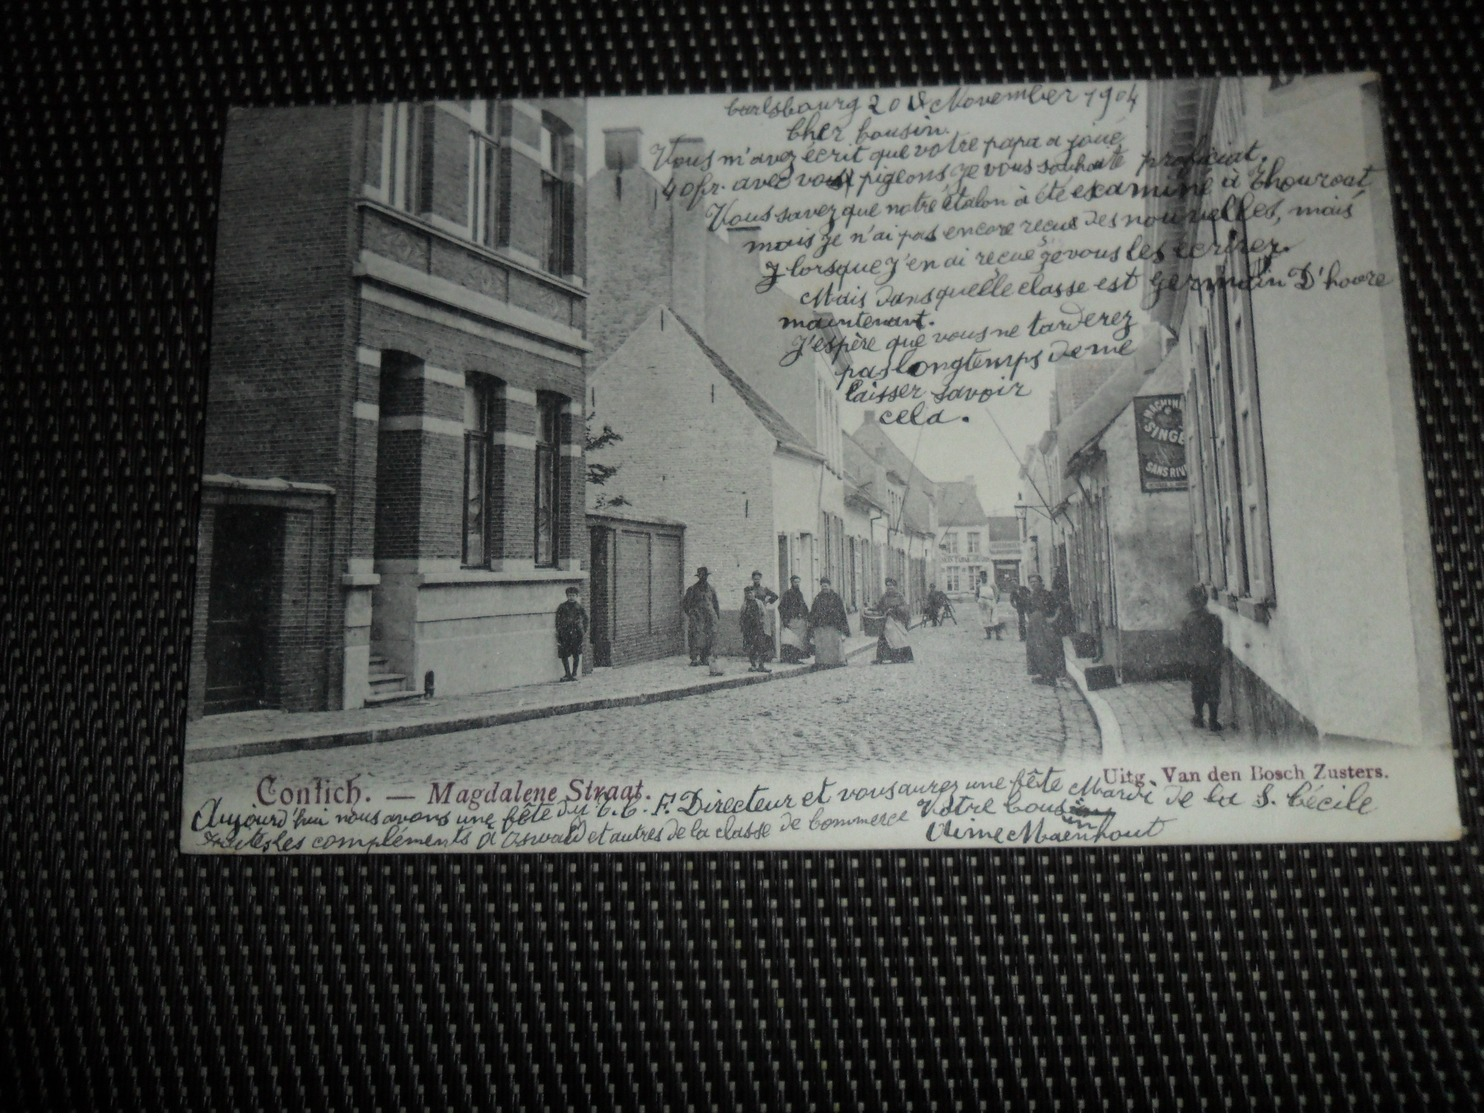 Carlsbourg 20 November 1904
Cher Cousin.
Vous m'avez écrit que votre papa a joué
40 fr. avec vos pigeons je vous souhaite proficiat.
Vous savez que notre étalon à été examiné à Thourout,
mais je n'ai pas encore recus des nouvelles, mais
lorsque j'en ai reçue je vous les écrirer.
Mais dans quelle classe est Germain D'hoore
maintenant.
J'espère que vous ne tarderez
pas longtemps de me
laisser savoir
cela.
MACHINES
SINGE
SANS RIV
Contich. — Magdalene Straat.
Uitg. Van den Bosch Zusters.
Aujourd'hui nous avons une fête du T. C. F. Directeur et vous aurez une fête Mardi de la S. Cécile
Faites les compléments à Oswald et autres de la classe de Commerce Votre Cousin
Aimé Maenhout